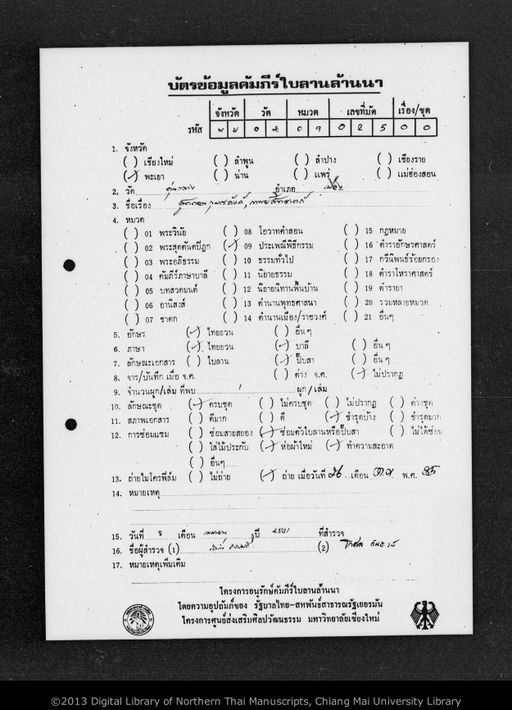 บัตรข้อมูลคัมภีร์ใบลานล้านนา
จังหวัด วัด หมวด เลขที่มัด เรื่อง/ชุด
รหัส พ ย 0 2 0 9 0 2 5 0 0
1. จังหวัด
( ) เชียงใหม่ ( ) ลำพูน ( ) ลำปาง ( ) เชียงราย
(✓) พะเยา ( ) น่าน ( ) แพร่ ( ) แม่ฮ่องสอน
2. วัด อำเภอ เมือง
3. ชื่อเรื่อง
4. หมวด
( ) 01 พระวินัย ( ) 08 โอวาทคำสอน ( ) 15 กฎหมาย
( ) 02 พระสุตตันตปิฎก (✓) 09 ประเพณีพิธีกรรม ( ) 16 ตำราอักษรศาสตร์
( ) 03 พระอภิธรรม ( ) 10 ธรรมทั่วไป ( ) 17 กวีนิพนธ์ร้อยกรอง
( ) 04 คัมภีร์ภาษาบาลี ( ) 11 นิยายธรรม ( ) 18 ตำราโหราศาสตร์
( ) 05 บทสวดมนต์ ( ) 12 นิยายนิทานพื้นบ้าน ( ) 19 ตำรายา
( ) 06 อานิสงส์ ( ) 13 ตำนานพุทธศาสนา ( ) 20 รวมหลายหมวด
( ) 07 ชาดก ( ) 14 ตำนานเมือง/ราชวงศ์ ( ) 21 อื่นๆ
5. อักษร (✓) ไทยยวน ( ) อื่นๆ
6. ภาษา (✓) ไทยยวน (✓) บาลี ( ) อื่นๆ
7. ลักษณะเอกสาร ( ) ใบลาน (✓) ปั๊บสา ( ) อื่นๆ
8. จาร/บันทึก เมื่อ จ.ศ. ( ) ค่าง จ.ศ. (✓) ไม่ปรากฏ
9. จำนวนผูก/เล่ม ที่พบ 1 ผูก/เล่ม
10. ลักษณะชุด (✓) ครบชุด ( ) ไม่ครบชุด ( ) ไม่ปรากฏ ( ) ต่างชุด
11. สภาพเอกสาร ( ) ดีมาก ( ) ดี (✓) ชำรุดบ้าง ( ) ชำรุดมาก
12. การซ่อมแซม ( ) ซ่อมสายสยอง (✓) ซ่อมตัวใบลานหรือปั๊บสา ( ) ไม่ได้ซ่อม
( ) ใส่ไม้ประกับ (✓) ห่อผ้าใหม่ (✓) ทำความสะอาด
( ) อื่นๆ
13. ถ่ายไมโครฟิล์ม ( ) ไม่ถ่าย (✓) ถ่าย เมื่อวันที่ 26 เดือน ต.ค. พ.ศ. 35
14. หมายเหตุ
15. วันที่ เดือน เมษายน ปี ที่สำรวจ
16. ชื่อผู้สำรวจ (1) (2)
17. หมายเหตุเพิ่มเติม
โครงการอนุรักษ์คัมภีร์ใบลานล้านนา
โดยความอุปถัมภ์ของ รัฐบาลไทย-สหพันธ์สาธารณรัฐเยอรมัน
โครงการศูนย์ส่งเสริมศิลปวัฒนธรรม มหาวิทยาลัยเชียงใหม่
©2013 Digital Library of Northern Thai Manuscripts, Chiang Mai University Library